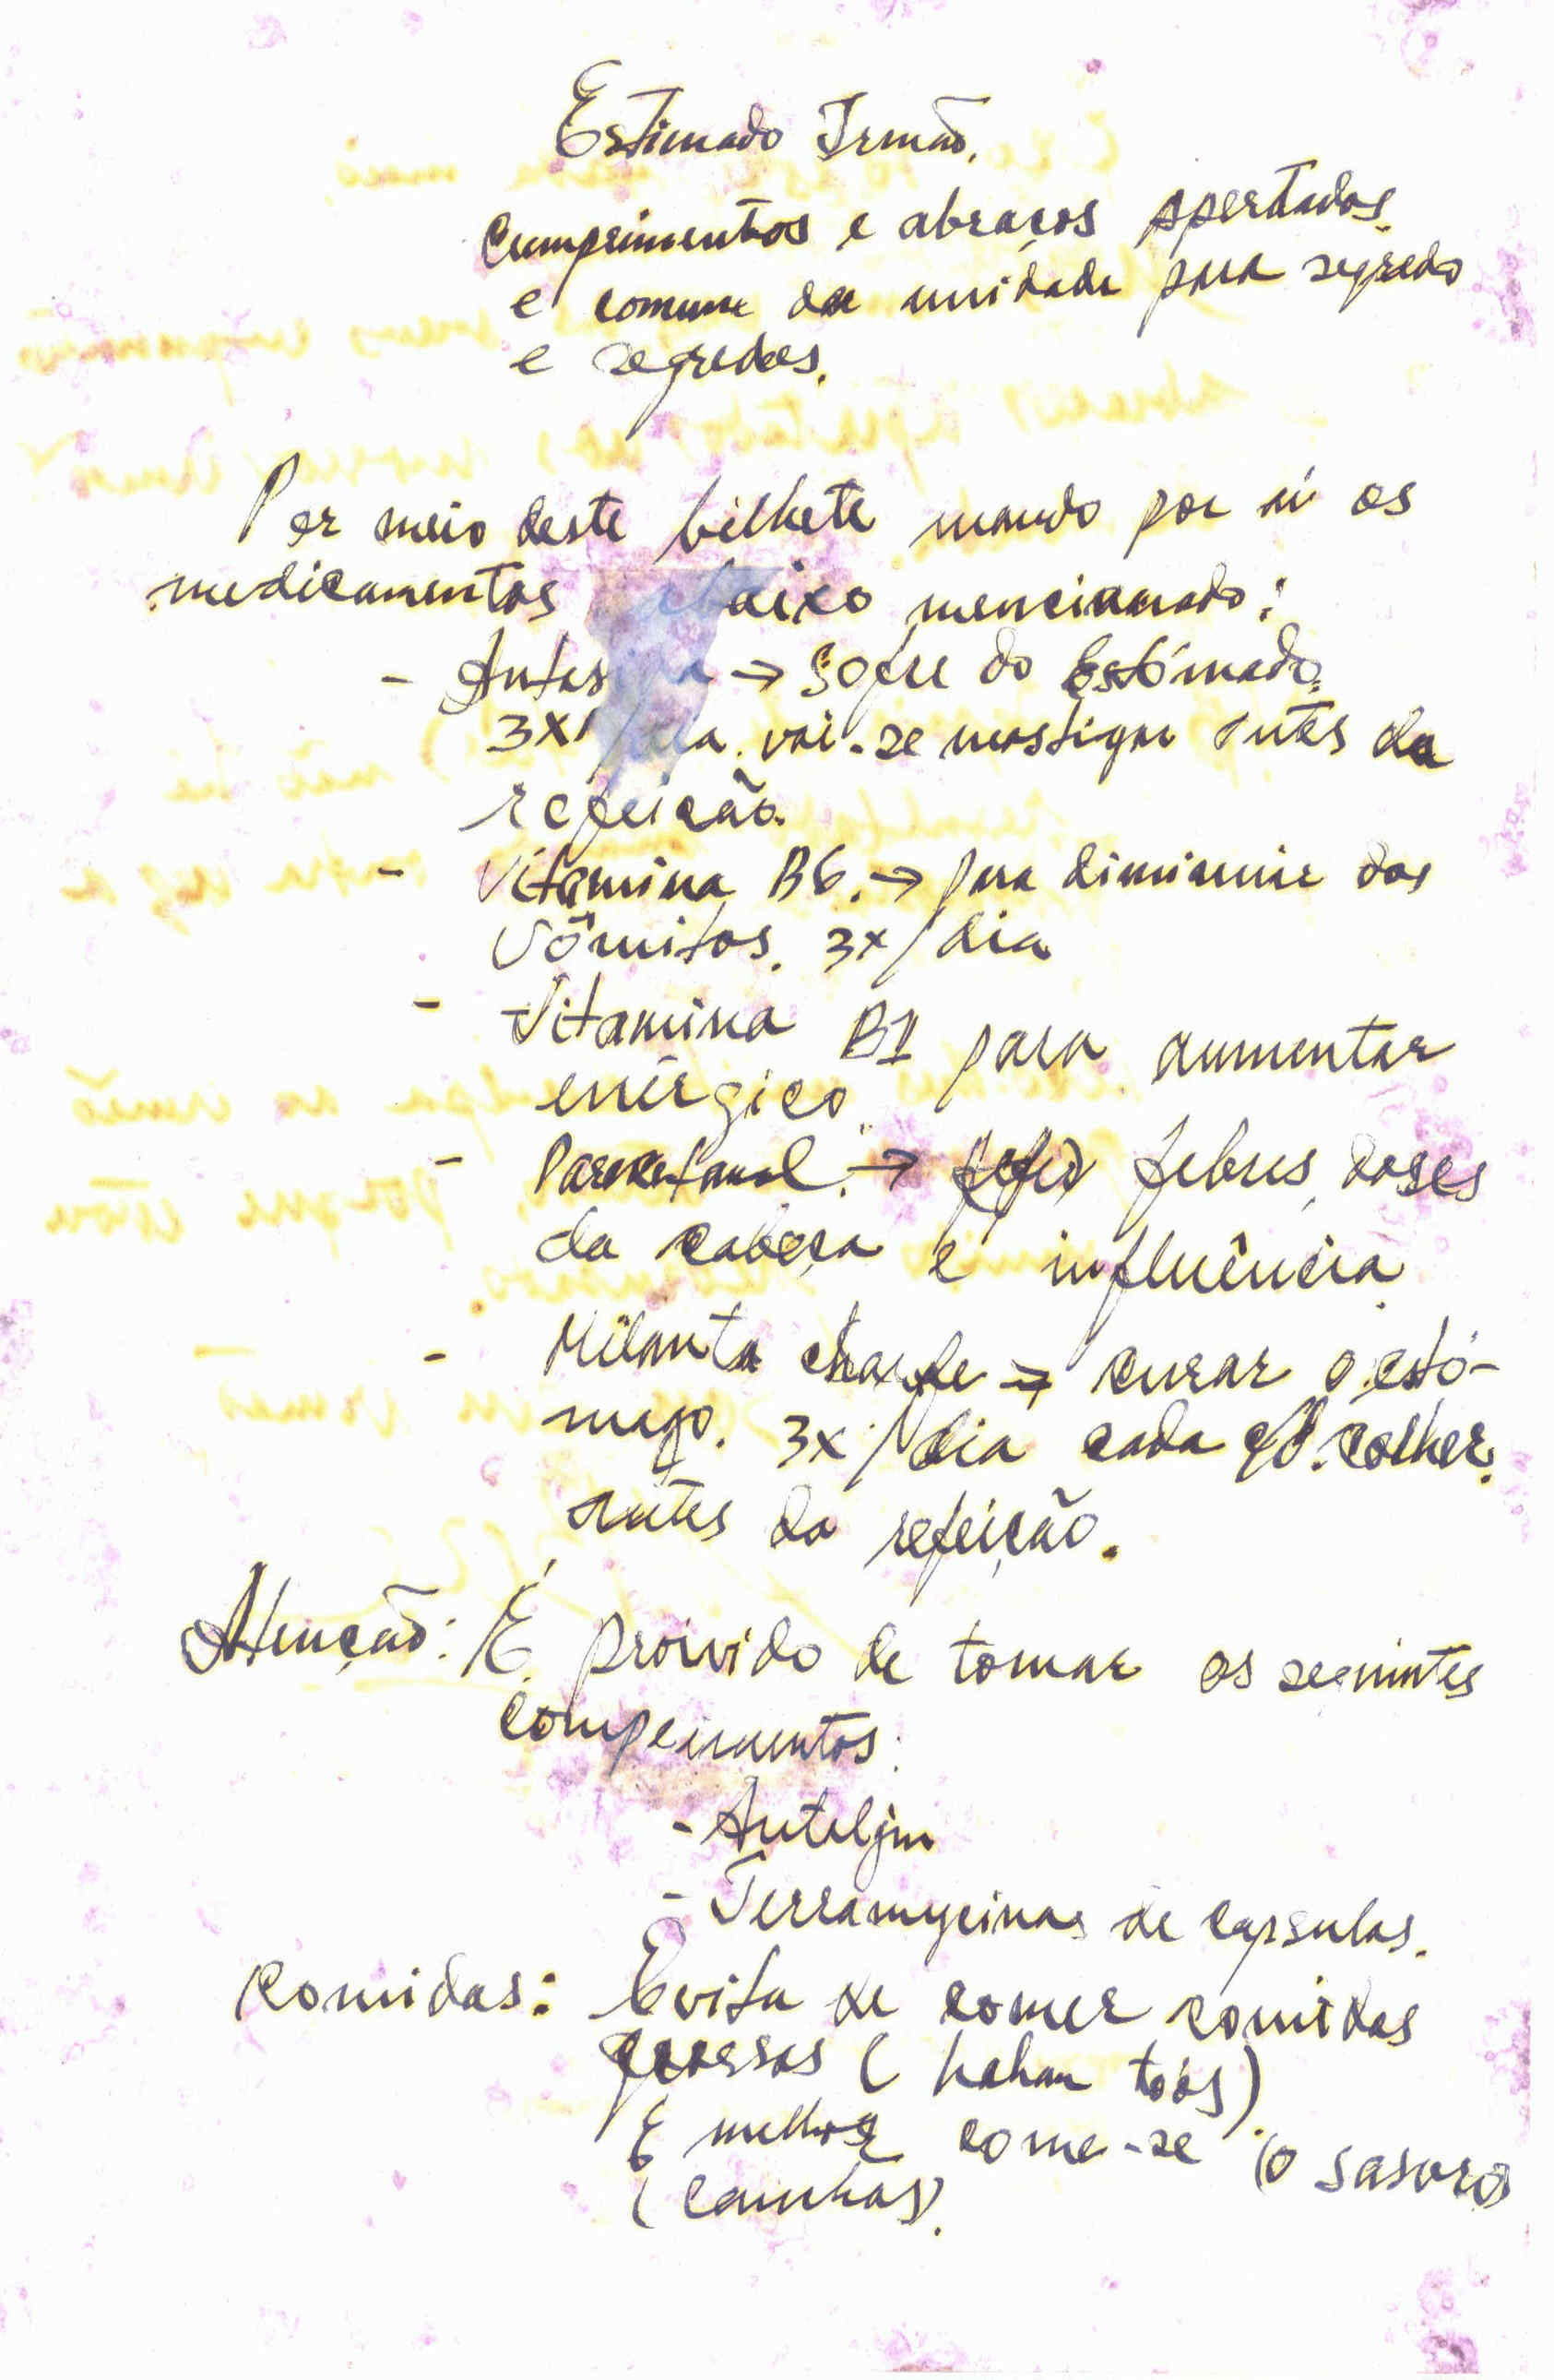 Estimado Irmão.
Cumprimentos e abraços apertados
e comum da unidade para segredo
e segredos.
Por meio deste bilhete mando por aí os
medicamentos abaixo mencionado:
- → Sofre do Estómado.
3X/ vai-se mastigar antes da
refeição.
- Vitamina B6. → para diminuir dos
Vômitos. 3x/dia
- Vitamina B1 para aumentar
enérgico.
- Paracetamol. → febres, doses
da cabeça e influência.
- Milanta → curar o estó-
mago. 3x/dia cada colher.
antes da refeição.
Atenção: É proivido de tomar os seguintes
compeimentos:
- Anteljin
- Terramycinas de capsulas.
Comidas: Evita de comer comidas
grossas (hahan toós).
É melhor come-se (o sasoro)
(Cainhas).